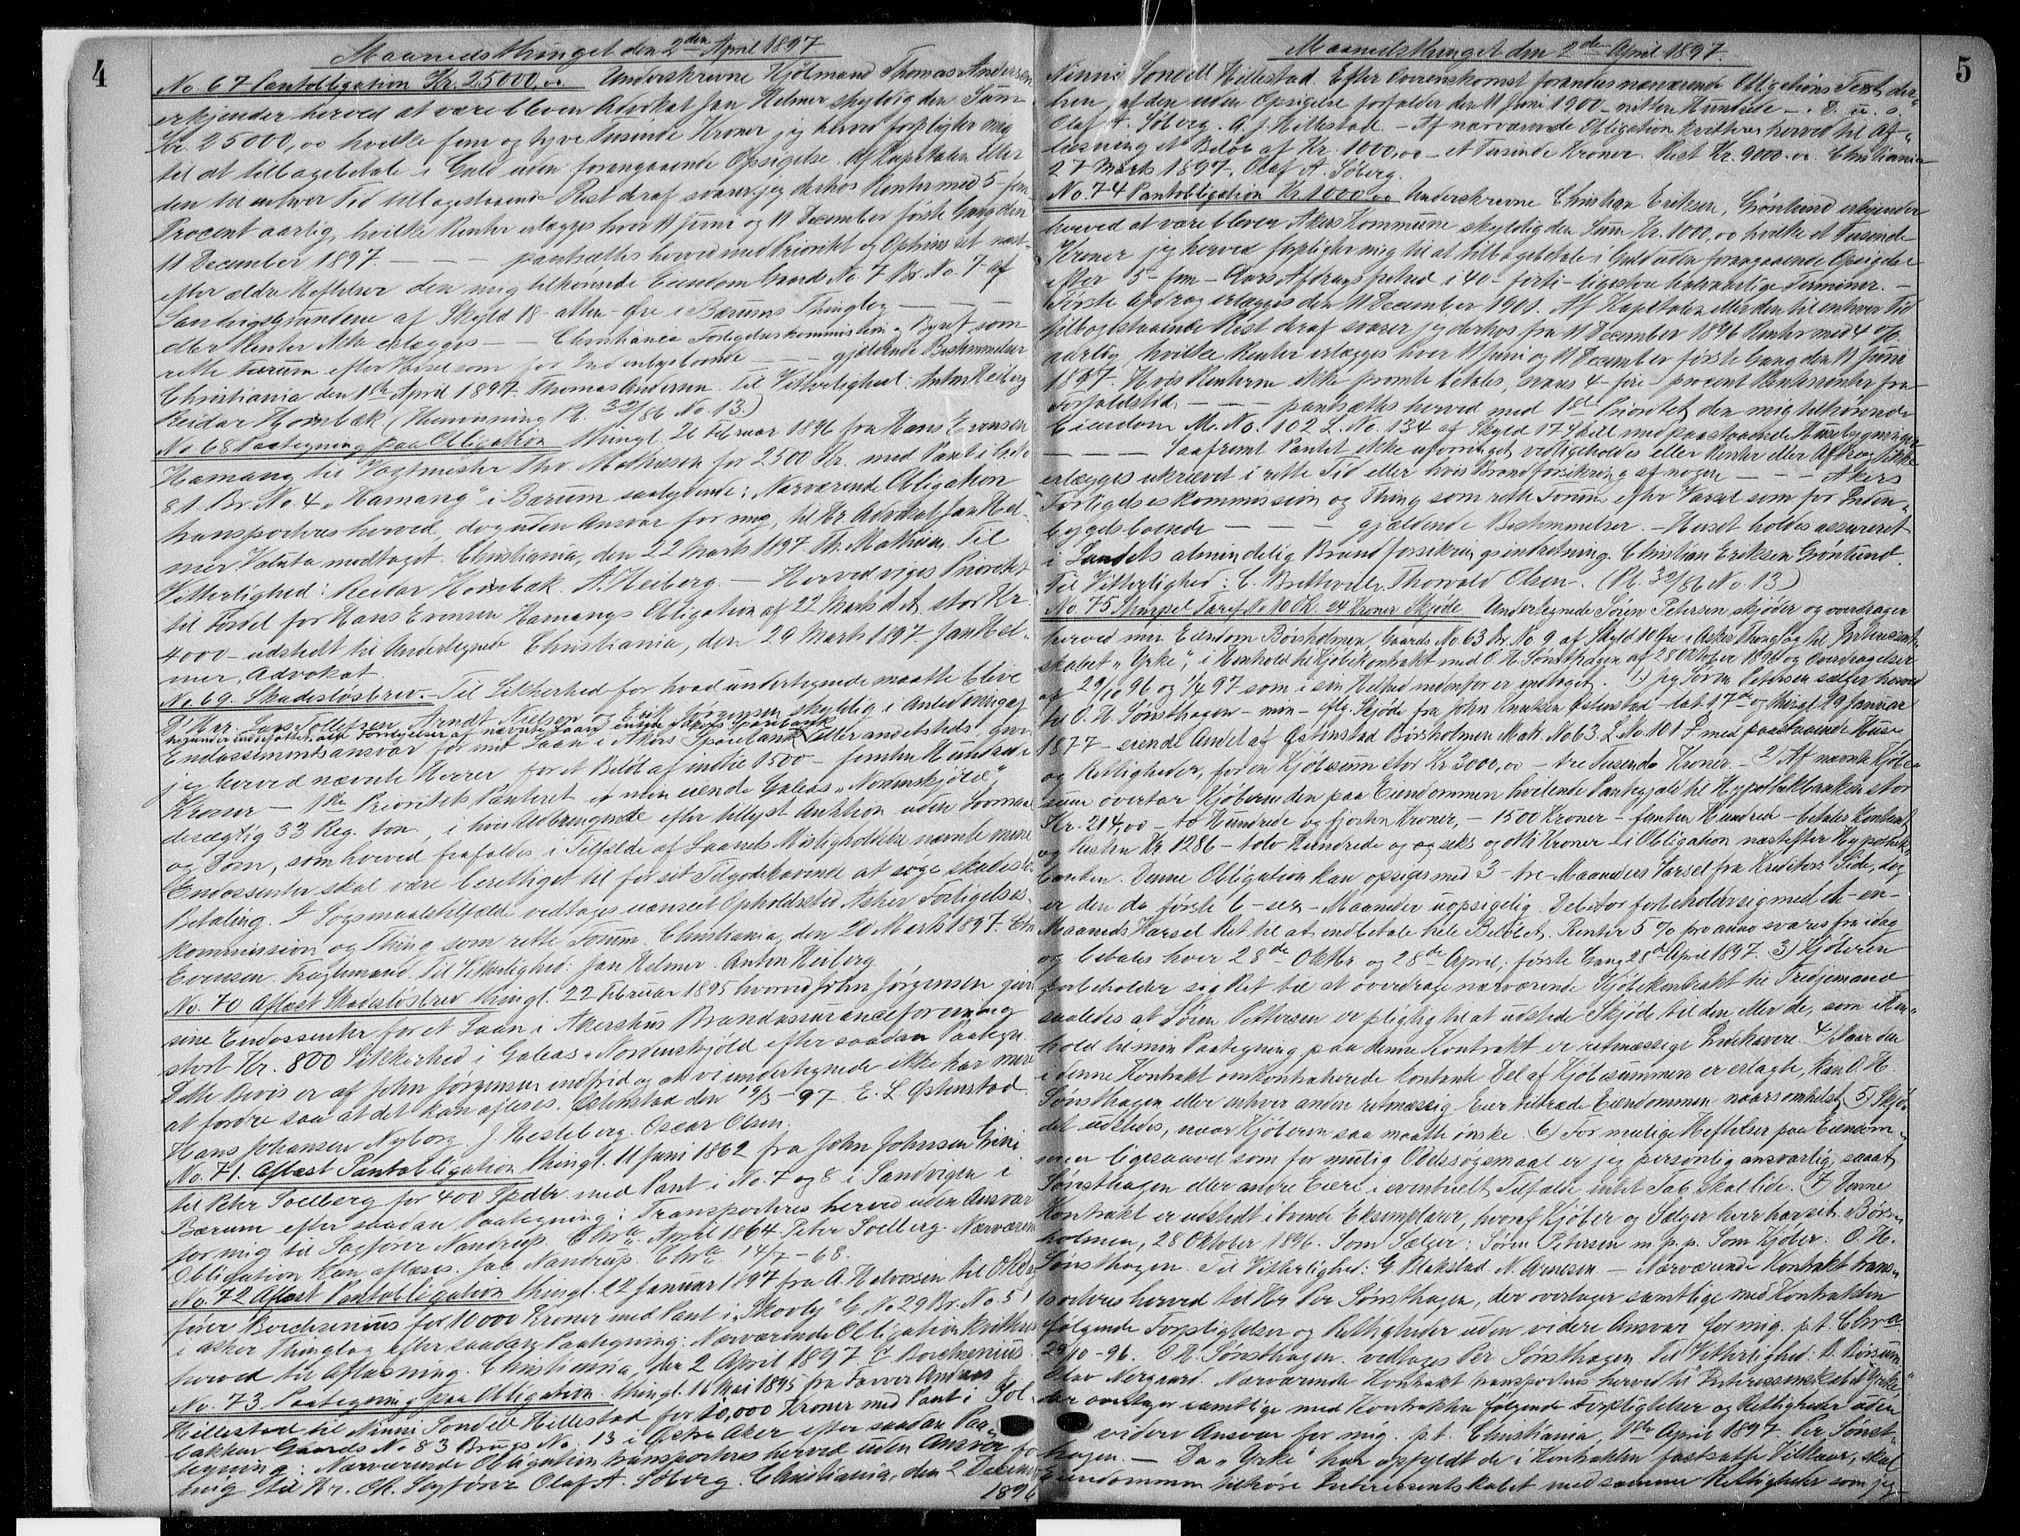 4
Maanedsthinget den 2den April 1897
No. 67 Pantobligation Kr. 25000,00 Underskrevne Kjøbmand Thomas Andersen
erkjender herved at være bleven Advokat Jan Helmer skyldig den Sum
Kr. 25000,00 hvilke fem og tyve Tusinde Kroner jeg herved forpligter mig
til at tilbagebetale i Guld uden forangaaende Opsigelse. Af Kapitalen eller
den til enhver Tid tilbagestaaende Rest deraf svarer jeg derhos Renter med 5 - fem
Procent aarlig, hvilke Renter erlægges hver 11 Juni og 11 December første Gang den
11 December 1897. — — — pantsættes herved med Prioritet og Optrinsret næst
efter ældre Heftelser den mig tilhørende Eiendom Gaards No. 7 Br. No. 7 af
Sandvigsgrundene af Skyld 18 - atten - Øre i Bærums Thinglag — — —
eller Renter ikke erlægges — — Christiania Forligelseskommission og Byret som
rette Forum efter Varsel som for Indenbysboende — — gjældende Bestemmelser
Christiania den 1ste April 1897. Thomas Andersen. Til Vitterlighed: Anton Heiberg
Reidar Hornbæk (Hemming Pl. 32/86 No. 13.)
No. 68 Paategning paa Obligation thingl. 26 Februar 1896 fra Hans Evensen
Hamang til Vagtmester Ths. Mathisen for 2500 Kr. med Pant i
81 Br. No. 4 „Hamang" i Bærum saalydende: Nærværende Obligation
transporteres herved, dog uden Ansvar for mig, til Hr. Advokat Jan Hel-
mer Valuta modtaget. Christiania, den 22 Marts 1897. Th. Mathisen. Til
Vitterlighed: Reidar Hornbæk. A. Heiberg. — Herved viges Prioritet
til Fordel for Hans Evensen Hamangs Obligation af 22 Marts d.A. stor Kr.
4000 - udstedt til Undertegnede Christiania, den 29 Marts 1897 Jan Hel-
mer, Advokat.
No. 69. Skadesløsbrev. Til Sikkerhed for hvad undertegnede maatte blive
D'Hrr. Lars Tollefsen, Arndt Nielsen og Erik Jørgensen skyldig i Anledning af
herunder indbefattet alle Fornyelser af nævnte Laan enten i Akers Sparebank
Endossementsansvar for mit Laan i Akers Sparebank eller andetsteds, giver
jeg herved nævnte Herrer for et Beløb af indtil 1500 - femten Hundrede
Kroner - 1ste Prioritets Panteret i min eiende Galeas „Nordenskjold"
drægtig 33 Reg. ton, i hvis Udbringende efter tillyst Auktion uden Lovmaal
og Dom, som herved frafaldes i Tilfælde af Laanets Misligholdelse nævnte mine
Endossenter skal være berettiget til for sit Tilgodehavende at søge skadesløs
Betaling. I Søgsmaalstilfælde vedtages uanseet Opholdssted Asker Forligelses-
kommission og Thing som rette Forum. Christiania, den 20 Marts 1897.
Evensen. Fragtemand. Til Vitterlighed: Jan Helmer. Anton Heiberg
No. 70 Aflæst Skadesløsbrev thingl. 22 Februar 1895 hvorved John Jørgensen giver
sine Endossenter for et Laan i Akershus Brandassuranceforening
stort Kr. 800 Sikkerhed i Galeas „Nordenskjold efter saadan Paategn.
Dette Bevis er af John Jørgensen indfriet og at vi undertegnede ikke har mere
at fordre saa at det kan aflæses. Østenstad den 16/3 - 97. E. L. Østenstad.
Hans Johansen Nyborg. J. Hesleberg. Oscar Olsen.
No. 71. Aflæst Pantobligation thingl. 11 Juni 1862 fra John Johnsen Grini
til Peter Solberg for 400 Spdlr. med Pant i No. 7 og 8 i Sandvigen i
Bærum efter saadan Paategning: Transporteres herved uden Ansvar
for mig til Sagfører Nandrup. Chra. April 1864. Peter Solberg. Nærværende
Obligation kan aflæses. Jac. Nandrup. Chra. 14/7 - 68.
No. 72 Aflæst Pantobligation thingl. 22 Januar 1897 fra A. Halvorsen til O.R.Sag-
fører Borchsenius for 10000 Kroner med Pant i „Skovly" G. No 29 Br. No. 51
i Asker Thinglag efter saadan Paategning: Nærværende Obligation kvitteres
herved til Aflæsning. Christiania, den 2 April 1897 Borchsenius.
No. 73 Paategning paa Obligation: thingl. 16 Mai 1895 fra Farver Anders
Hillestad til Ninni Sondell Hillestad for 10,000 Kroner med Pant i Sol-
bakken Gaards No 83 Brugs No. 13 i Østre Aker efter saadan Paa-
tegning: Nærværende Obligation transporteres herved uden Ansvar for
mig til Hr. O.R. Sagfører Olaf A. Söberg. Christiania, den 2 Decem-
1896
5
Maanedsthinget den 2den April 1897.
Ninni Sondell Hillestad. Efter Overenskomst forandres nærværende Obligations Text der-
hen, at den uden Opsigelse forfalder den 11 Juni 1900 - nitten Hundrede — . D. u. s.
Olaf A. Söberg. A. J. Hillestad. — Af nærværende Obligation kvitteres herved til Af-
læsning et Beløb af Kr. 1000,00 - et Tusinde Kroner. Rest Kr. 9000.00. Christiania
27 Marts 1897. Olaf A. Söberg.
No. 74 Pantobligation Kr. 1000,00 Underskrevne Christian Eriksen, Grønlund erkjender
herved at være bleven Akers Kommune skyldig den Sum Kr. 1000,00 hvilke et Tusende
Kroner jeg herved forpligter mig til at tilbagebetale i Guld uden forangaaende Opsigelse
efter 5 - fem - Aars Afdragsfrihed i 40 - forti - ligestore halvaarlige Terminer. -
Første Afdrag erlægges den 11 December 1901. Af Kapitalen eller den til enhver Tid
tilbagestaaende Rest deraf svarer jeg derhos fra 11 December 1896 Renter med 4 o/o
aarlig, hvilke Renter erlægges hver 11 Juni og 11 December første Gang den 11 Juni
1897. Hvis Renterne ikke promte betales, svares 4 - fire - procent Rentesrenter fra
Forfaldstid. — — — pantsættes herved med 1ste Prioritet den mig tilhørende
Eiendom M. No. 102 L. No. 134 af Skyld 17 Skill med paastaaende Husebygninger
— — — Saafremt Pantet ikke uforringet vedligeholdes eller Renter eller Afdrag ikke
erlægges ukrævet i rette Tid eller hvis Brandforsikring af nogen — — — Akers
Forligelseskommission og Thing som rette Forum efter Varsel som for Inden-
bygdsboende — — — gjældende Bestemmelser. - Huset holdes assureret
i Landets almindelig Brandforsikringsindretning. Christian Eriksen Grønlund.
Til Vitterlighed: C. Brettevile. Thorvald Olsen. (Pl. 32/86 No 13)
No. 75 Stempel Tarif No 10 Ch. 24 Kroner Skjøde Undertegnede Søren Petersen skjøder og overdrager
herved min Eiendom Børsholmen, Gaards No. 63 Br. No. 9 af Skyld 10 Øre i Asker Thinglag til Interessent-
skabet „Yrke", i Henhold til Kjøbekontrakt med O. H. Sønsthagen af 28 Oktober 1896 og Overdragelser
af 29/10 96 og 1/4 97 som i sin Helhed nedenfor er indtaget. 1) Jeg Søren Petersen sælger herved
til O. H. Sønsthagen - min - iflg. Skjøde fra John Knutsen Østenstad - dat. 17de og thingl. 19 Januar
1877 - eiende Andel af Østenstad Børsholmen Mat. No 63. L. No 101 F med paastaaende Huse
og Rettigheder, for en Kjøbesum stor Kr. 3000,00 - tre Tusende Kroner - 2) Af nævnte Kjøbe-
sum overtar Kjøberne den paa Eiendommen hvilende Pantegjæld til Hypothekbanken stor
Kr. 214,00 - to Hundrede og fjorten Kroner, - 1500 Kroner - femten Hundrede - betales kontant
og Resten Kr 1286 - tolv Hundrede og seks og otti Kroner - i Obligation næstefter Hypothek-
banken. Denne Obligation kan opsiges med 3 - tre - Maaneders Varsel fra Kreditors Side, dog
er den de første 6 - sex - Maaneder uopsigelig. Debitor forbeholder sig med et - en -
Maaneds Varsel Ret til at indbetale hele Beløbet. Renter 5 % pro anno svares fra idag
og betales hver 28de Oktbr og 28de April, første Gang 28de April 1897. 3) Kjøberen
forbeholder sig Ret til at overdrage nærværende Kjøbekontrakt til Tredjemand
saaledes at Søren Pettersen er pligtig til at udstede Skjøde til den eller de, som i Hen-
hold til min Paategning paa denne Kontrakt er retmæssige Indehavere. 4) Naar den
i denne Kontrakt omkontraherede kontante Del af Kjøbesummen er erlagt, kan O. H.
Sønsthagen eller enhver anden retmæssig Eier tiltræde Eiendommen naarsomhelst. 5) Skjø-
det udstedes, naar Kjøberen saa maatte ønske. 6) For mulige Heftelser paa Eiendom-
men ligesaavel som for mulig Odelssøgsmaal er jeg personlig ansvarlig, saaat
Sønsthagen eller andre Eiere i eventuelt Tilfælde intet Tab skal lide. 7) Denne
Kontrakt er udstedt i tvende Eksemplarer, hvoraf Kjøber og Sælger hver har sit. Børs-
holmen, 28 Oktober 1896. Som Sælger: Søren Petersen m. p. p. Som Kjøber: O. H.
Sønsthagen. Til Vitterlighed: G. Blakstad. N. Arnesen — Nærværende Kontrakt trans-
porteres herved til Hr Per Sønsthagen, der overtager samtlige med Kontrakten
følgende Forpligtelser og Rettigheder uden videre Ansvar for mig. p.t. Chra.
29/10 - 96. O H. Sønsthagen. vedtages Per Sønsthagen Til Vitterlighed: B. Børsum
Olav Nergaard. Nærværende Kontrakt transporteres herved til Interessentskabet „Yrke"
der overtager samtlige med Kontrakten følgende Forpligtelser og Rettigheder uden
videre Ansvar for mig. p.t. Christiania, 1ste April 1897. Per Sønst-
hagen. — Da „Yrke" har opfyldt de i Kontrakten fastsatte Vilkaar, skal
Eiendommen tilhøre Interessentskabet med samme Rettigheder som jeg